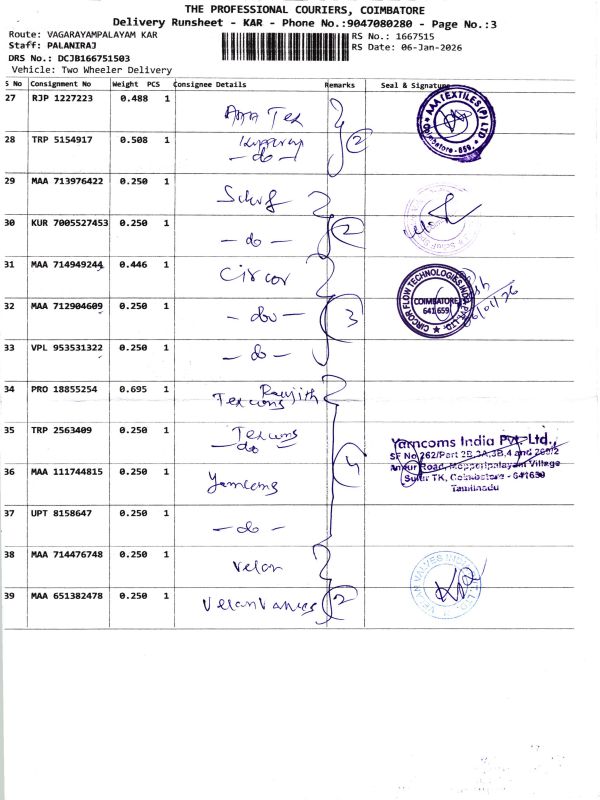 THE PROFESSIONAL COURIERS, COIMBATORE
Delivery Runsheet - KAR - Phone No.:9047080280 - Page No.:3
Route: VAGARAYAMPALAYAM KAR
RS No.: 1667515
Staff: PALANIRAJ
RS Date: 06-Jan-2026
DRS No.: DCJB166751503
Vehicle: Two Wheeler Delivery
S No Consignment No Weight PCS Consignee Details Remarks Seal & Signature
27 RJP 1227223 0.488 1 AAA Tex
AAA TEXTILES (P) LTD
Coimbatore - 659.
28 TRP 5154917 0.508 1 - do - 2
29 MAA 713976422 0.250 1
30 KUR 7005527453 0.250 1 - do - 2
31 MAA 714949244 0.446 1 Circor
CIRCOR FLOW TECHNOLOGIES INDIA PVT. LTD.
COIMBATORE
641 659
06/01/26
32 MAA 712904609 0.250 1 - do - 3
33 VPL 953531322 0.250 1 - do -
34 PRO 18855254 0.695 1 Ranjith
Texcoms
35 TRP 2563409 0.250 1 Texcoms
- do -
Yarncoms India Pvt. Ltd.,
SF No 262/Part 2B,3A,3B,4 and 269/2
Annur Road, Mopperipalayam Village
Sulur TK, Coimbatore - 641659
Tamilnadu
36 MAA 111744815 0.250 1 Yarncoms 4
37 UPT 8158647 0.250 1 - do -
38 MAA 714476748 0.250 1 Velan
39 MAA 651382478 0.250 1 Velan Valves 2